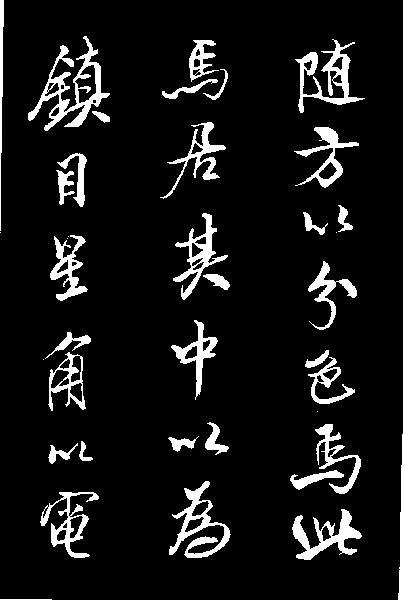 随方以分色焉此
馬居其中以為
鎮目星角以電